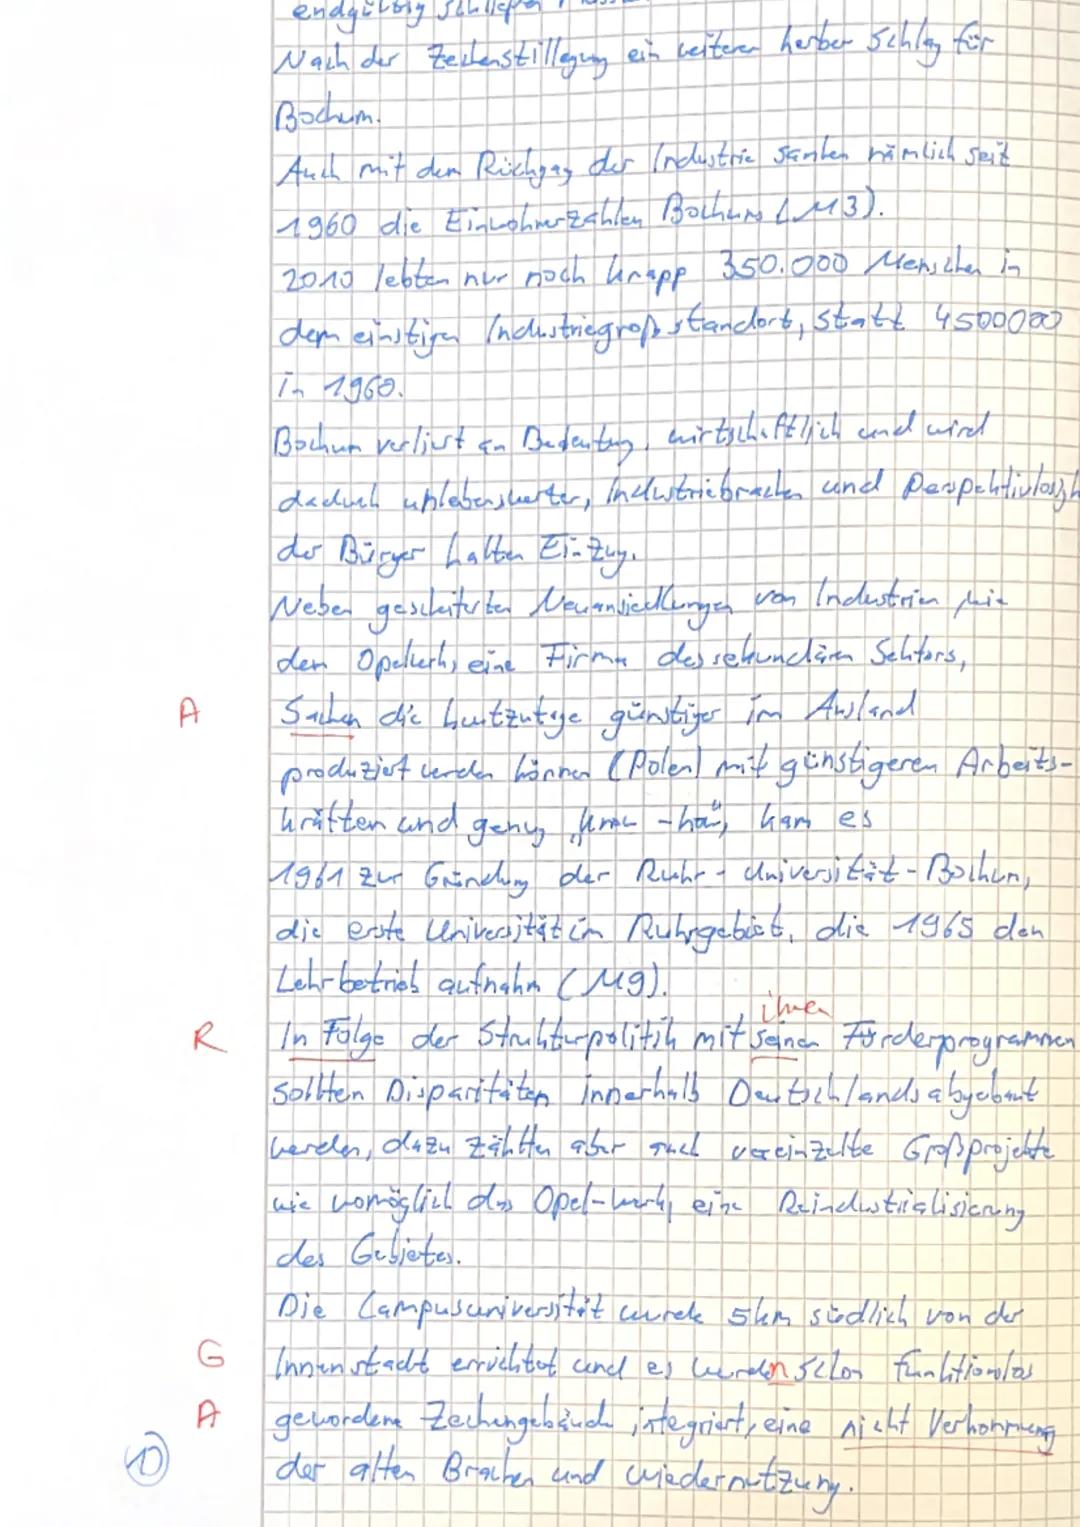 endgültig schließen
Nach der Zechenstillegung ein weiterer herber Schlag für
Bochum.
Auch mit dem Rückgag der Industrie sanken nämlich seit
1960 die Einwohnerzahlen Bochums (M3).
2010 lebten nur noch knapp 350.000 Menschen in
dem einstigen Industriegroßstandort, statt 4500000
in 1960.
Bochum verliert an Bedeutung, wirtschaftlich und wird
dadurch unlebenswerter, Industriebrachen und
der Bürger halten Einzug.
Neben gescheiterten Neuansiedlungen von Industrien wie
dem Opelwerk, eine Firma des sekundären Sektors,
A Sachen die heutzutage günstiger im Ausland
produziert werden können (Polen) mit günstigeren Arbeits-
kräften und genug „know-how", kam es
1961 zur Gründung der Ruhr-Universität-Bochum,
die erste Universität im Ruhrgebiet, die 1965 den
Lehrbetrieb aufnahm (M9).
ihren
R In Folge der Strukturpolitik mit seinen Förderprogrammen
sollten Disparitäten innerhalb Deutschlands abgebaut
werden, dazu zählten aber auch vereinzelte Großprojekte
wie womöglich das Opel-werk, eine Reindustrialisierung
des Gebietes.
Die Campusuniversität wurde 5km südlich von der
G Innenstadt errichtet und es wurden schon funktionslos
A gewordene Zechengebäude integriert, eine nicht Verkommung
10 der alten Brachen und wiedernutzung.